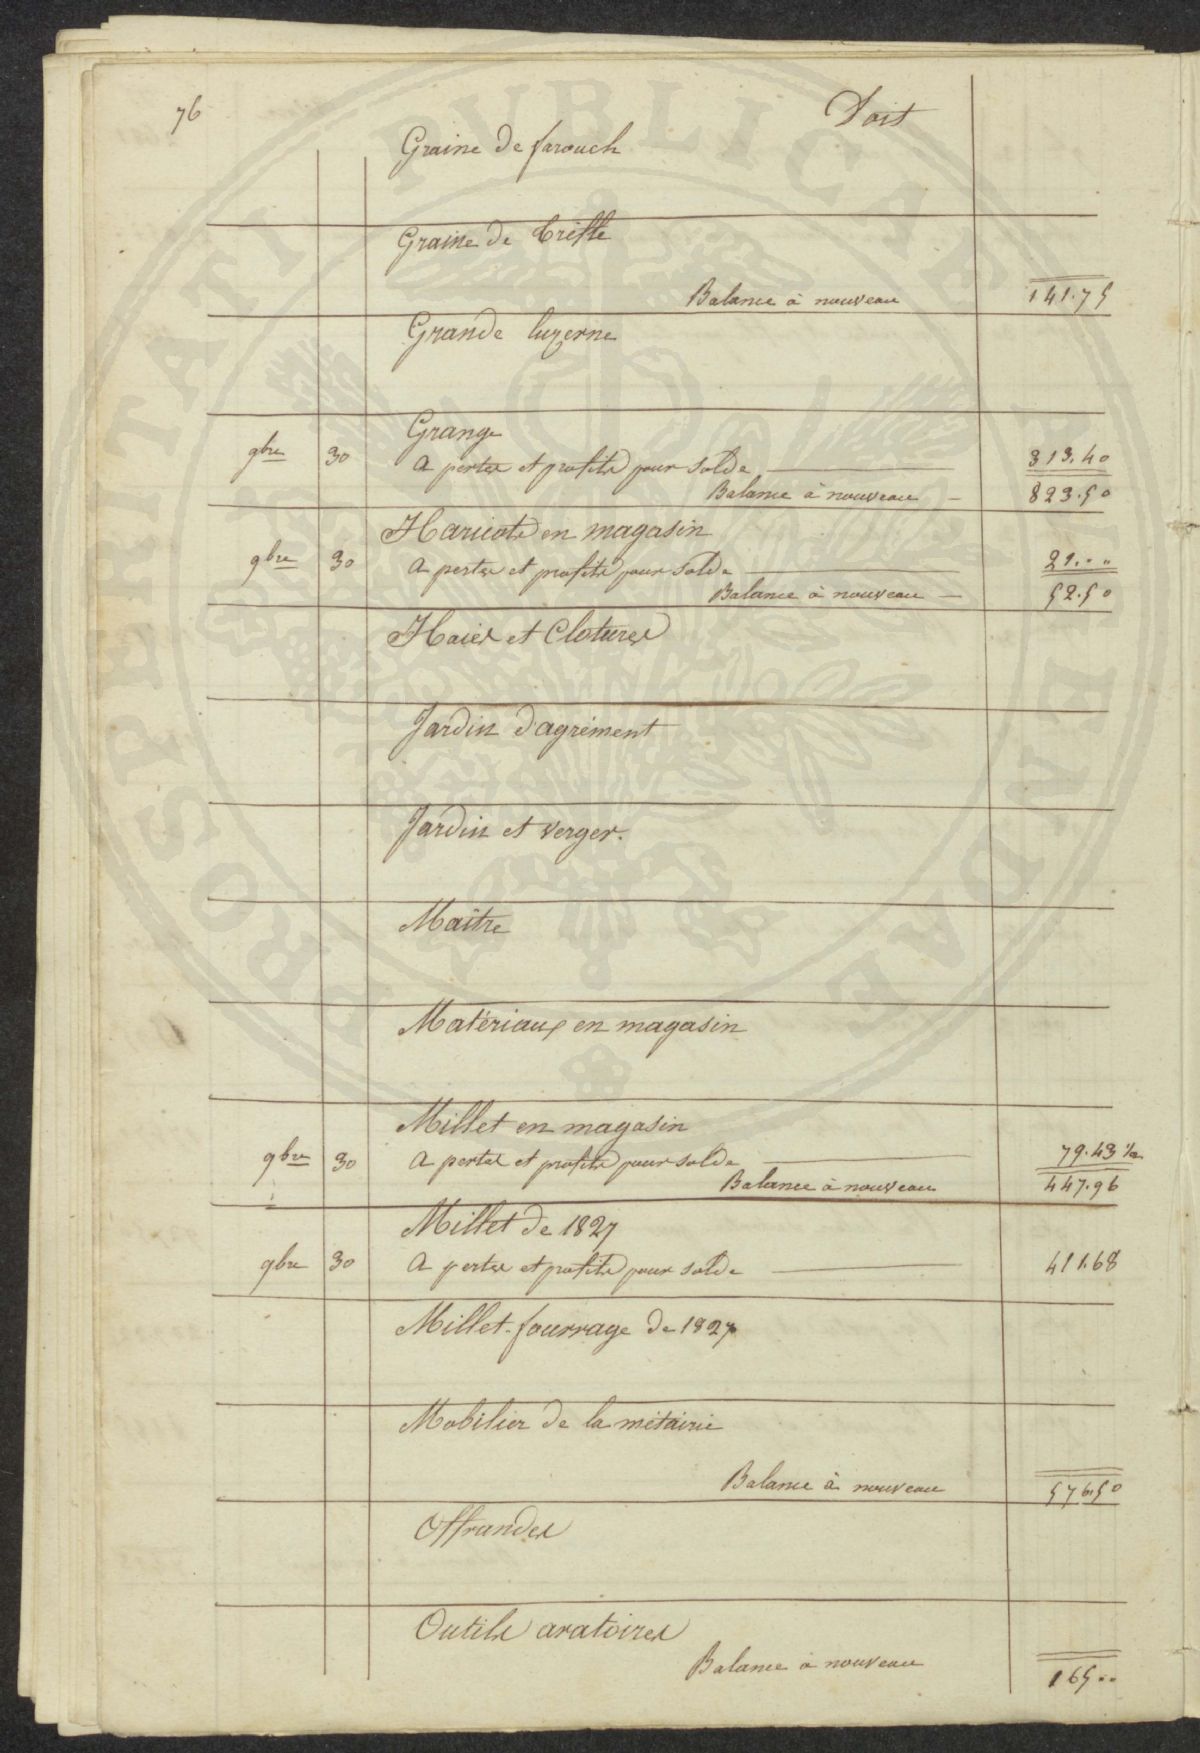 76
Doit
Graine de farouch
Graine de treffle
Balance à nouveau 141.75
Grande luzerne
Grange
9bre 30 A pertes et profits pour solde 313.40
Balance à nouveau 823.50
Haricots en magasin
9bre 30 A pertes et profits pour solde 21.""
Balance à nouveau 52.50
Haies et Clotures
Jardin d'agrément
Jardin et verger.
Maître
Matériaux en magasin
Millet en magasin
9bre 30 A pertes et profits pour solde 79.43 1/2
Balance à nouveau 447.96
Millet de 1827
9bre 30 A pertes et profits pour solde 411.68
Millet-fourrage de 1827
Mobilier de la métairie
Balance à nouveau 576.50
Offrandes
Outils aratoires
Balance à nouveau 165""
PROSPERITATI PUBLICAE